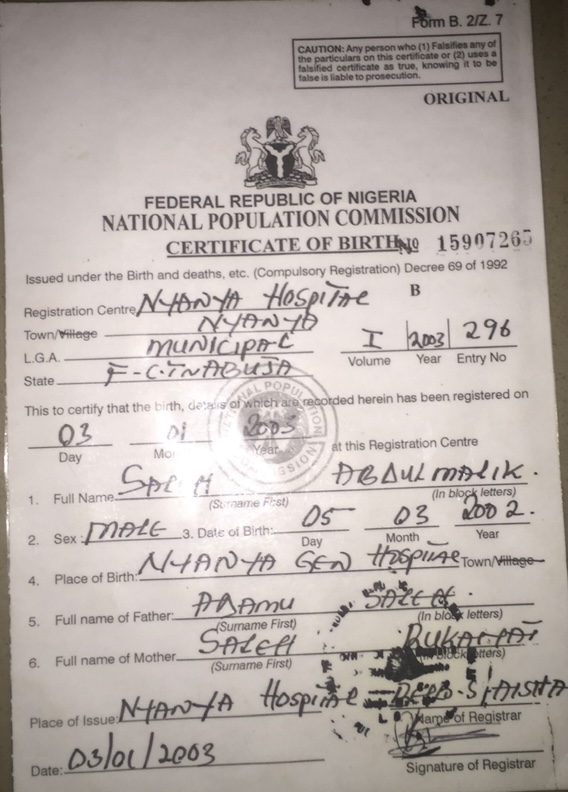 Form B. 2/Z. 7
CAUTION: Any person who (1) Falsifies any of
the particulars on this certificate or (2) uses a
falsified certificate as true, knowing it to be
false is liable to prosecution.
ORIGINAL
FEDERAL REPUBLIC OF NIGERIA
NATIONAL POPULATION COMMISSION
CERTIFICATE OF BIRTH No 15907265
Issued under the Birth and deaths, etc. (Compulsory Registration) Decree 69 of 1992
B
Registration Centre NYANYA HOSPITAL
Town/Village NYANYA
L.G.A. MUNICIPAL I 2003 296
Volume Year Entry No
State F-C.T ABUJA
This to certify that the birth, details of which are recorded herein has been registered on
03 01 2003 at this Registration Centre
Day Year
1. Full Name SALEH ABDULMALIK.
(Surname First) (In block letters)
2. Sex: MALE 3. Date of Birth: 05 03 2002.
Day Month Year
4. Place of Birth: NYANYA GEN HOSPITAL Town/Village
5. Full name of Father: ADAMU SALEH.
(Surname First) (In block letters)
6. Full name of Mother SALEH
(Surname First) (In block letters)
Place of Issue: NYANYA HOSPITAL
Name of Registrar
Date: 03/01/2003
Signature of Registrar